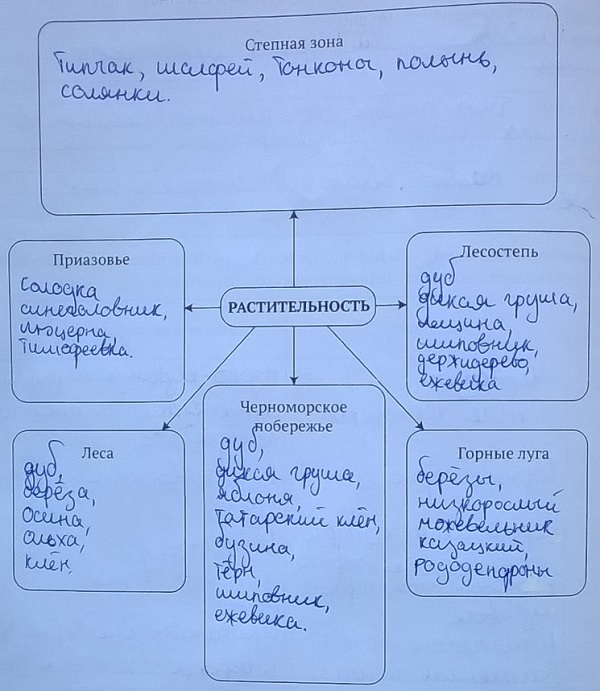 Степная зона
Типчак, шалфей, тонконог, полынь,
солянки.
Приазовье
Солодка
синеголовник,
люцерна,
тимофеевка.
РАСТИТЕЛЬНОСТЬ
Лесостепь
дуб
дикая груша,
лещина,
шиповник,
держидерево,
ежевика
Леса
дуб,
берёза,
осина,
ольха,
клён.
Черноморское
побережье
дуб,
дикая груша,
яблоня,
татарский клён,
бузина,
тёрн,
шиповник,
ежевика.
Горные луга
берёзы,
низкорослый
можевельник
казацкий,
рододендроны